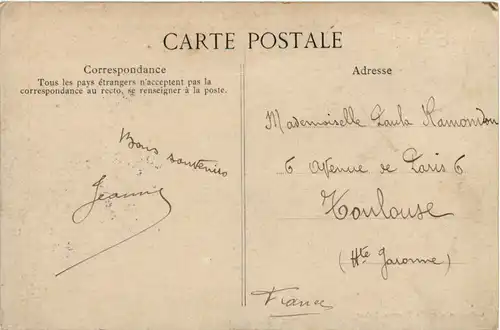 CARTE POSTALE
Correspondance
Tous les pays étrangers n'acceptent pas la
correspondance au recto, se renseigner à la poste.
Bons souvenirs
Jeanne
Adresse
Mademoiselle Paula
6 Avenue de Paris 6
Toulouse
(Hte Garonne)
France